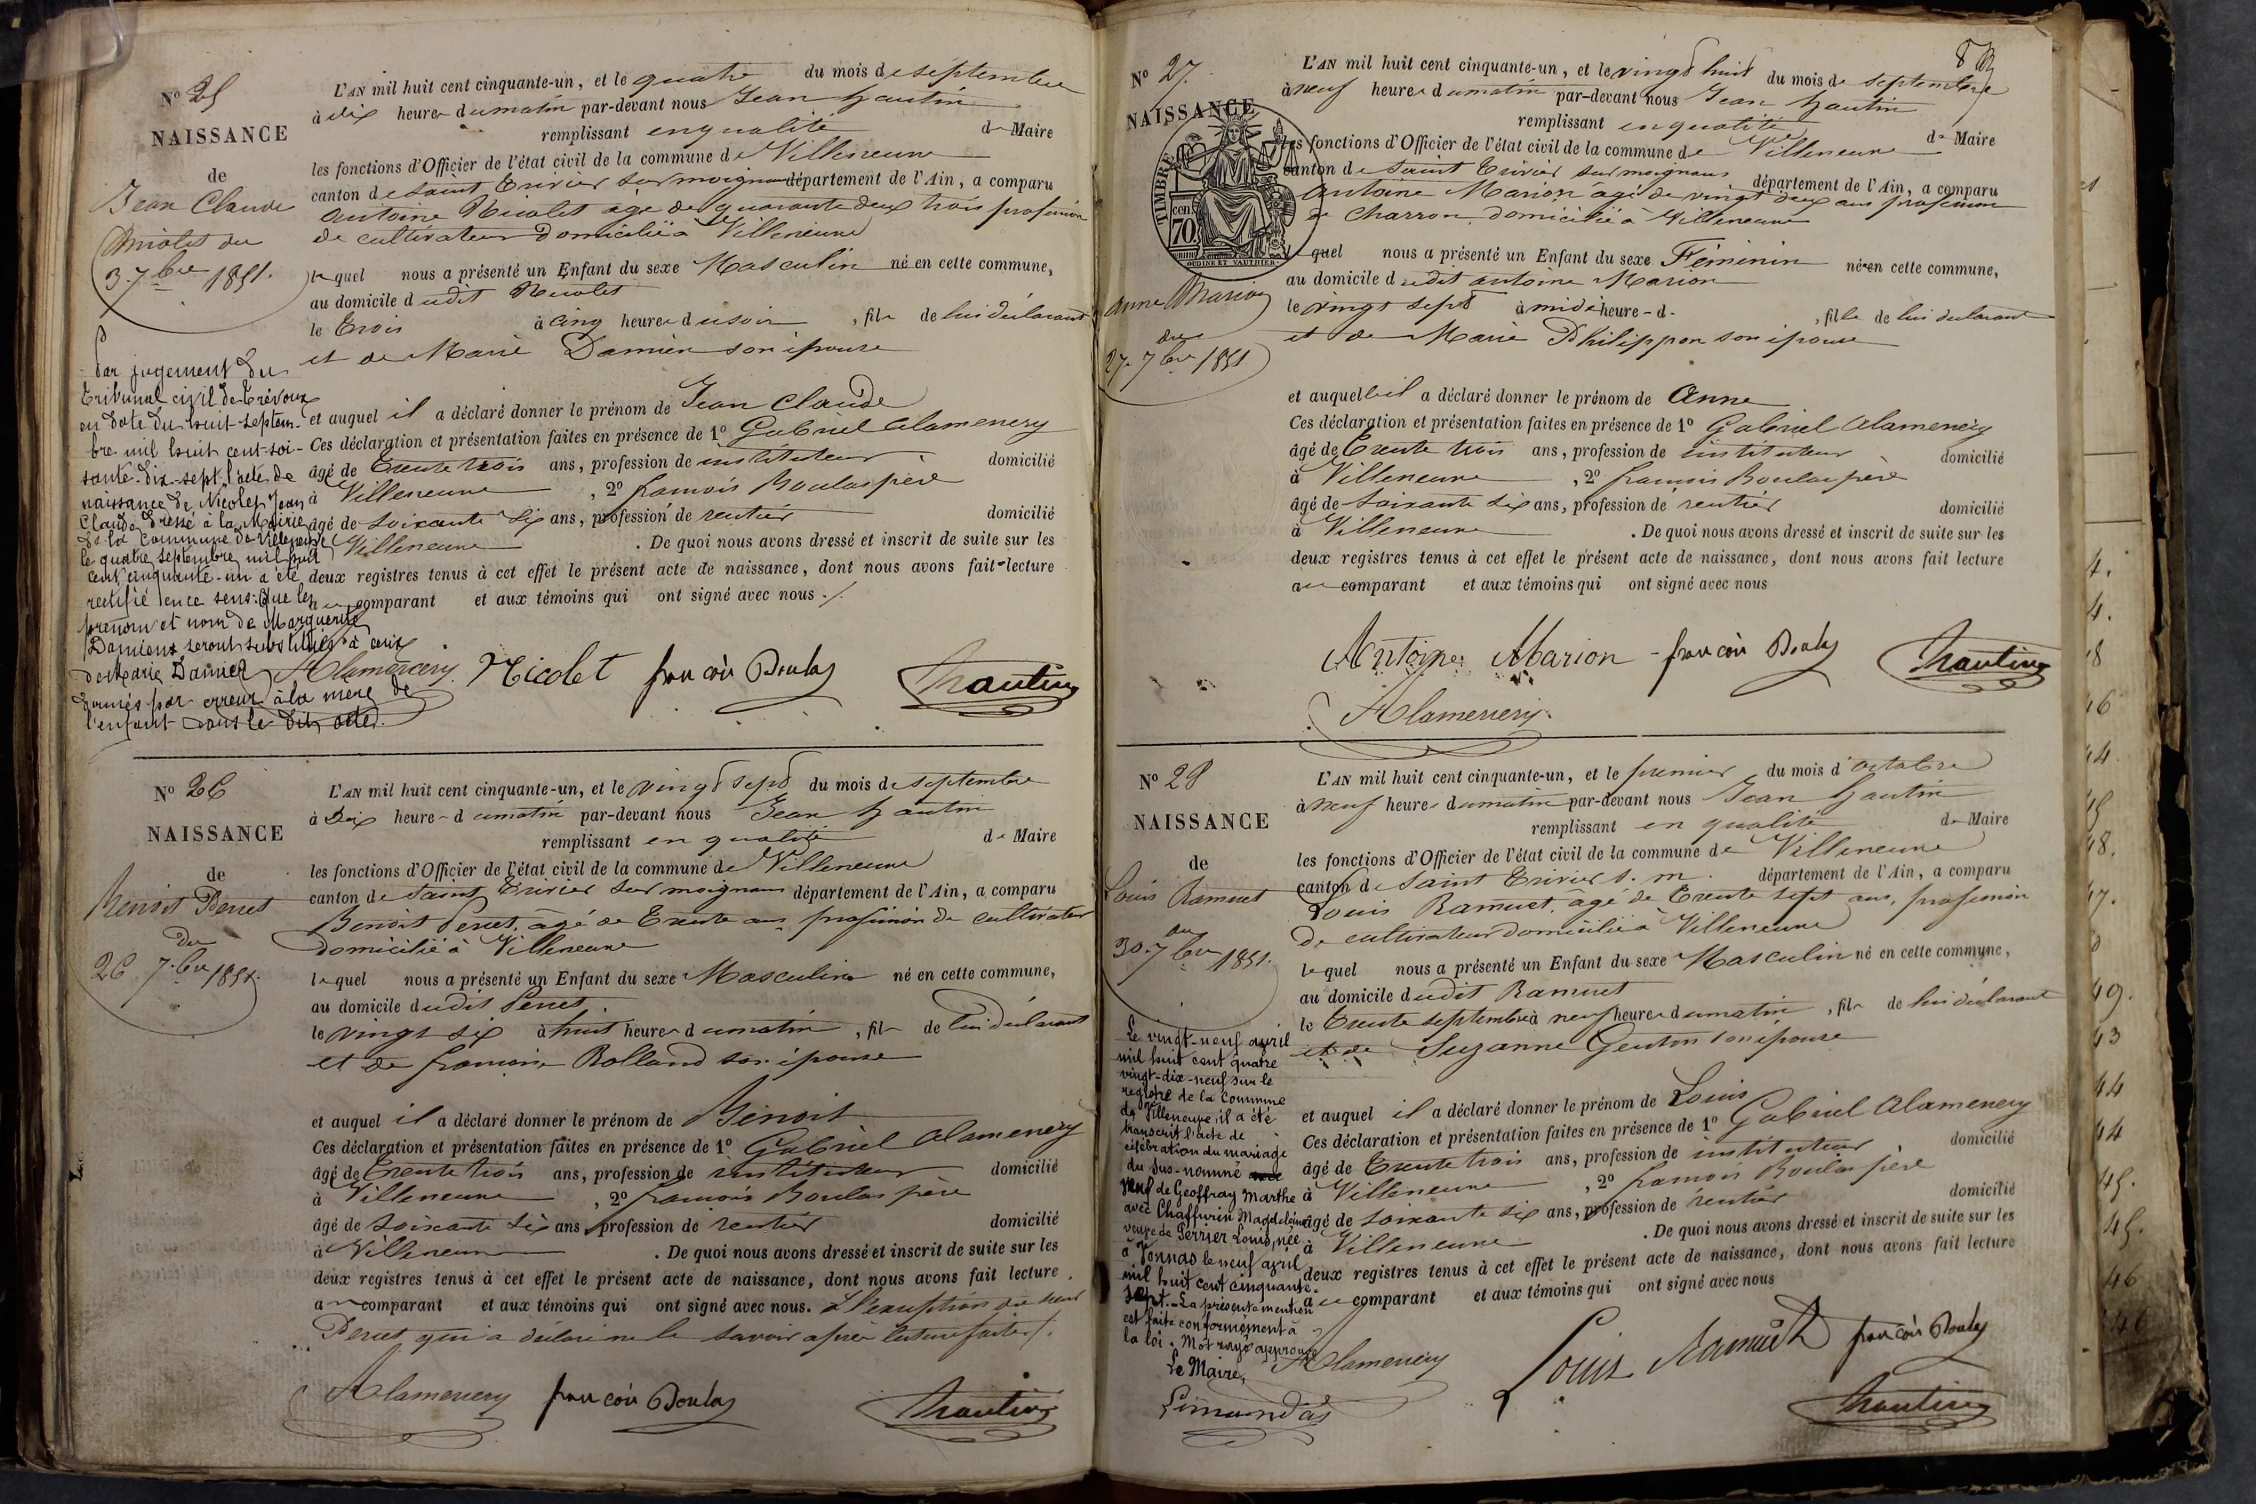 N° 25
NAISSANCE
de
Jean Claude
Nicolet du
3 7bre 1851.
L'AN mil huit cent cinquante-un, et le quatre du mois de septembre
à dix heures du matin par-devant nous Jean hautin
remplissant en qualité de Maire
les fonctions d'Officier de l'état civil de la commune de Villeneuve
canton de Saint Trivier sur moignans département de l'Ain, a comparu
antoine Nicolet âgé de quarante deux trois profession
de cultivateur domicilié à Villeneuve
lequel nous a présenté un Enfant du sexe Masculin né en cette commune,
au domicile dudit Nicolet
le trois à cinq heures du soir, fils de lui déclarant
et de Marie Damien son épouse
et auquel il a déclaré donner le prénom de Jean Claude
Ces déclaration et présentation faites en présence de 1° Gabriel Alamercery
âgé de trente trois ans, profession de instituteur domicilié
à Villeneuve, 2° françois Boulas père
âgé de soixante six ans, profession de rentier domicilié
à Villeneuve. De quoi nous avons dressé et inscrit de suite sur les
deux registres tenus à cet effet le présent acte de naissance, dont nous avons fait lecture
au comparant et aux témoins qui ont signé avec nous ./.
Alamercery Nicolet françois Boulas hautin
Par jugement du
Tribunal civil de Trévoux
en date du huit septem-
bre mil huit cent soi-
xante-dix-sept l'acte de
naissance de Nicolet Jean
Claude dressé à la Mairie
de la commune de Villeneuve
le quatre septembre mil huit
cent cinquante-un a été
rectifié en ce sens que les
prénom et nom de Marguerite
Damiens seront substitués à ceux
de Marie Damien
donnés par erreur à la mère de
l'enfant dans le dit acte.
N° 26
NAISSANCE
de
Benoit Perret
du
26 7.bre 1851.
L'AN mil huit cent cinquante-un, et le vingt sept du mois de septembre
à Dix heures du matin par-devant nous Jean hautin
remplissant en qualité de Maire
les fonctions d'Officier de l'état civil de la commune de Villeneuve
canton de Saint Trivier sur moignans département de l'Ain, a comparu
Benoit Perret, âgé de Trente ans profession de cultivateur
domicilié à Villeneuve
lequel nous a présenté un Enfant du sexe Masculin né en cette commune,
au domicile dudit Perret
le vingt six à huit heures du matin, fils de lui déclarant
et de françoise Rolland son épouse
et auquel il a déclaré donner le prénom de Benoit
Ces déclaration et présentation faites en présence de 1° Gabriel Alamercery
âgé de Trente trois ans, profession de instituteur domicilié
à Villeneuve, 2° françois Boulas père
âgé de soixante six ans, profession de rentier domicilié
à Villeneuve. De quoi nous avons dressé et inscrit de suite sur les
deux registres tenus à cet effet le présent acte de naissance, dont nous avons fait lecture
au comparant et aux témoins qui ont signé avec nous. à l'exception du sieur
Perret qui a déclaré ne le savoir après lecture faite ./.
Alamercery françois Boulas hautin
83
N° 27.
NAISSANCE
TIMBRE
cen. 70
OUDINE ET VAUTHIER
anne Marion
du
27. 7bre 1851
L'AN mil huit cent cinquante-un, et le vingt huit du mois de septembre
à neuf heures du matin par-devant nous Jean hautin
remplissant en qualité de Maire
les fonctions d'Officier de l'état civil de la commune de Villeneuve
canton de Saint Trivier sur moignans département de l'Ain, a comparu
Antoine Marion âgé de vingt deux ans profession
de Charron domicilié à Villeneuve
lequel nous a présenté un Enfant du sexe Féminin née en cette commune,
au domicile dudit antoine Marion
le vingt sept à midi heure - d -, fille de lui déclarant
et de Marie Philippon son épouse
et auquel il a déclaré donner le prénom de Anne
Ces déclaration et présentation faites en présence de 1° Gabriel Alamercery
âgé de Trente trois ans, profession de instituteur domicilié
à Villeneuve, 2° françois Boulas père
âgé de soixante six ans, profession de rentier domicilié
à Villeneuve. De quoi nous avons dressé et inscrit de suite sur les
deux registres tenus à cet effet le présent acte de naissance, dont nous avons fait lecture
au comparant et aux témoins qui ont signé avec nous
Antoine Marion françois Boulas hautin
Alamercery
N° 28
NAISSANCE
de
Louis Ramuet
du
30. 7bre 1851.
L'AN mil huit cent cinquante-un, et le premier du mois d'octobre
à neuf heures du matin par-devant nous Jean hautin
remplissant en qualité de Maire
les fonctions d'Officier de l'état civil de la commune de Villeneuve
canton de Saint Trivier s. m. département de l'Ain, a comparu
Louis Ramuet, âgé de Trente sept ans, profession
de cultivateur domicilié à Villeneuve
lequel nous a présenté un Enfant du sexe Masculin né en cette commune,
au domicile dudit Ramuet
le Trente septembre à neuf heures du matin, fils de lui déclarant
et de Suzanne Genton son épouse
et auquel il a déclaré donner le prénom de Louis
Ces déclaration et présentation faites en présence de 1° Gabriel Alamercery
âgé de Trente trois ans, profession de instituteur domicilié
à Villeneuve, 2° françois Boulas père
âgé de soixante six ans, profession de rentier domicilié
à Villeneuve. De quoi nous avons dressé et inscrit de suite sur les
deux registres tenus à cet effet le présent acte de naissance, dont nous avons fait lecture
au comparant et aux témoins qui ont signé avec nous
Alamercery Louis Ramuet françois Boulas
hautin
Le vingt-neuf avril
mil huit cent quatre
vingt-dix-neuf sur le
registre de la commune
de Villeneuve, il a été
transcrit l'acte de
célébration du mariage
du sus-nommé
veuf de Geoffray Marthe
avec Chaffurin Magdeleine
veuve de Perrier Louis, née
à Vonnas le neuf avril
mil huit cent cinquante-
sept. - La présente mention
est faite conformément à
la loi. Mot rayé approuvé
Le Maire,